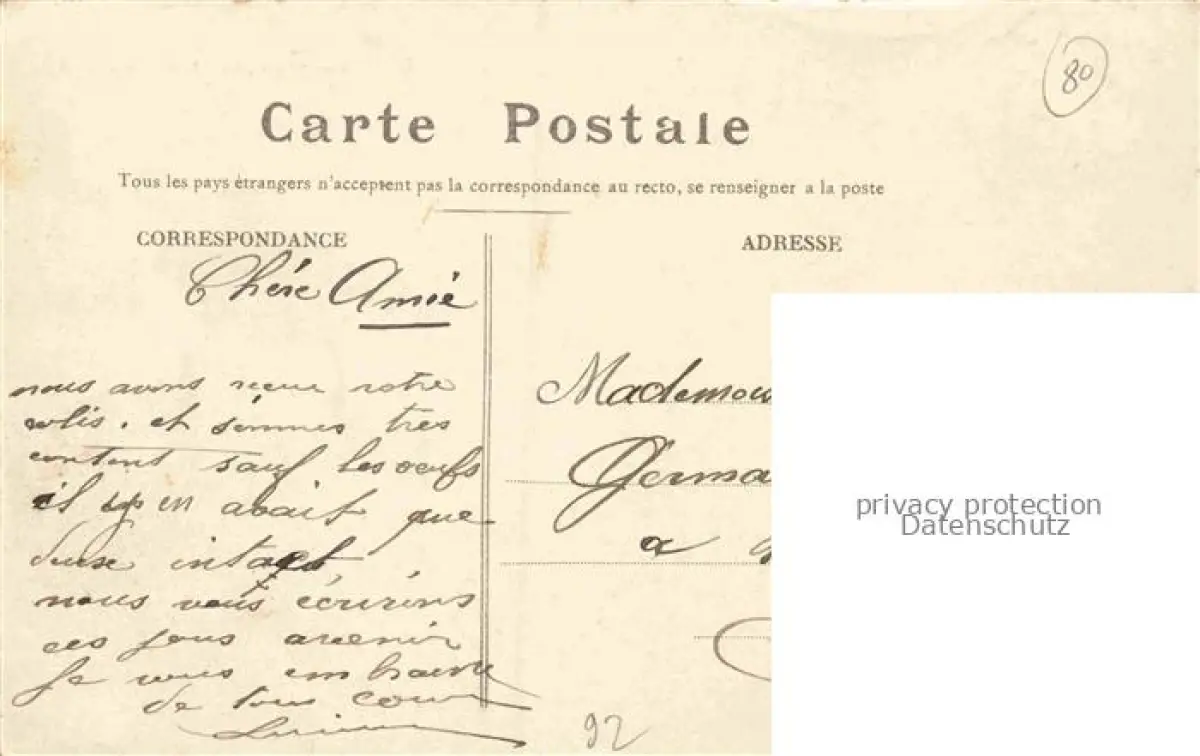 80
Carte Postale
Tous les pays étrangers n'acceptent pas la correspondance au recto, se renseigner a la poste
CORRESPONDANCE
ADRESSE
Chére Amie
nous avons reçue votre
colis. et sommes très
content sauf les oeufs
il y en avait que
intact
nous vous écrirons
ces jours avenir
Je vous embrasse
de tous coeur
Mademoi
Germa
a
privacy protection
Datenschutz
92